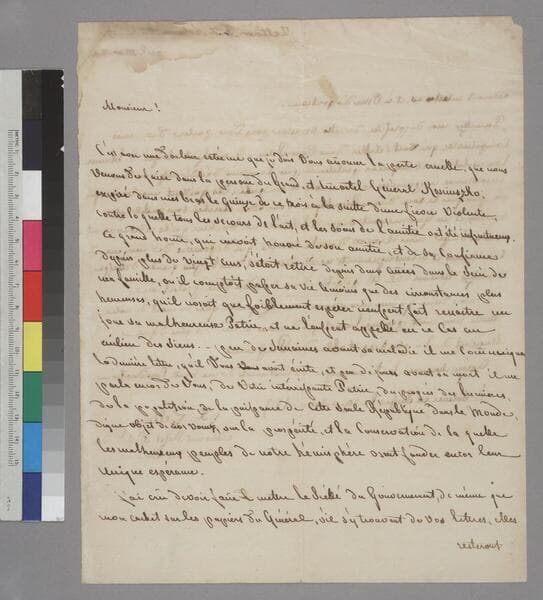 Monsieur!
C'est avec une douleur extrême que je dois Vous annoncer la perte cruelle, que nous
Venons de faire dans la personne du Grand, et immortel Général Kosciuszko,
expiré dans mes bras le quinze de ce mois à la suitte d'une fievre Violente,
contre laquelle tous les secours de l'art, et les soins de l'amitié ont été infructueux.
Ce grand homme, qui m'avoit honoré de son amitié, et de sa Confiance
depuis plus de Vingt ans, s'étoit retiré depuis deux années dans le Sein de
ma famille, où il comptoit passer sa vie à moins que des circonstances plus
heureuses, qu'il n'osoit que foiblement espérer n'eussent fait renaitre un
jour sa malheureuse Patrie, et ne l'eussent appellé en ce Cas au
milieu des Siens... peu de Semaines avant sa maladie il me Communiqua
la derniere lettre, qu'il Vous avoit écrite, et peu de jours avant sa mort il me
parla encor de Vous, de Votre intéressante Patrie, du progrès des lumieres,
de la population, de la puissance de Cette Seule République dans le Monde,
digne objet de nos Voeux, sur la prosperité, et la Conservation de la quelle
les malheureux peuples de notre hémisphère vont fonder encor leur
Unique espérance.
J'ai crû devoir faire mettre le Scellé du Gouvernement, de même que
mon cachet sur les papiers du Général, s'il s'y trouvent de vos lettres, elles
resteront